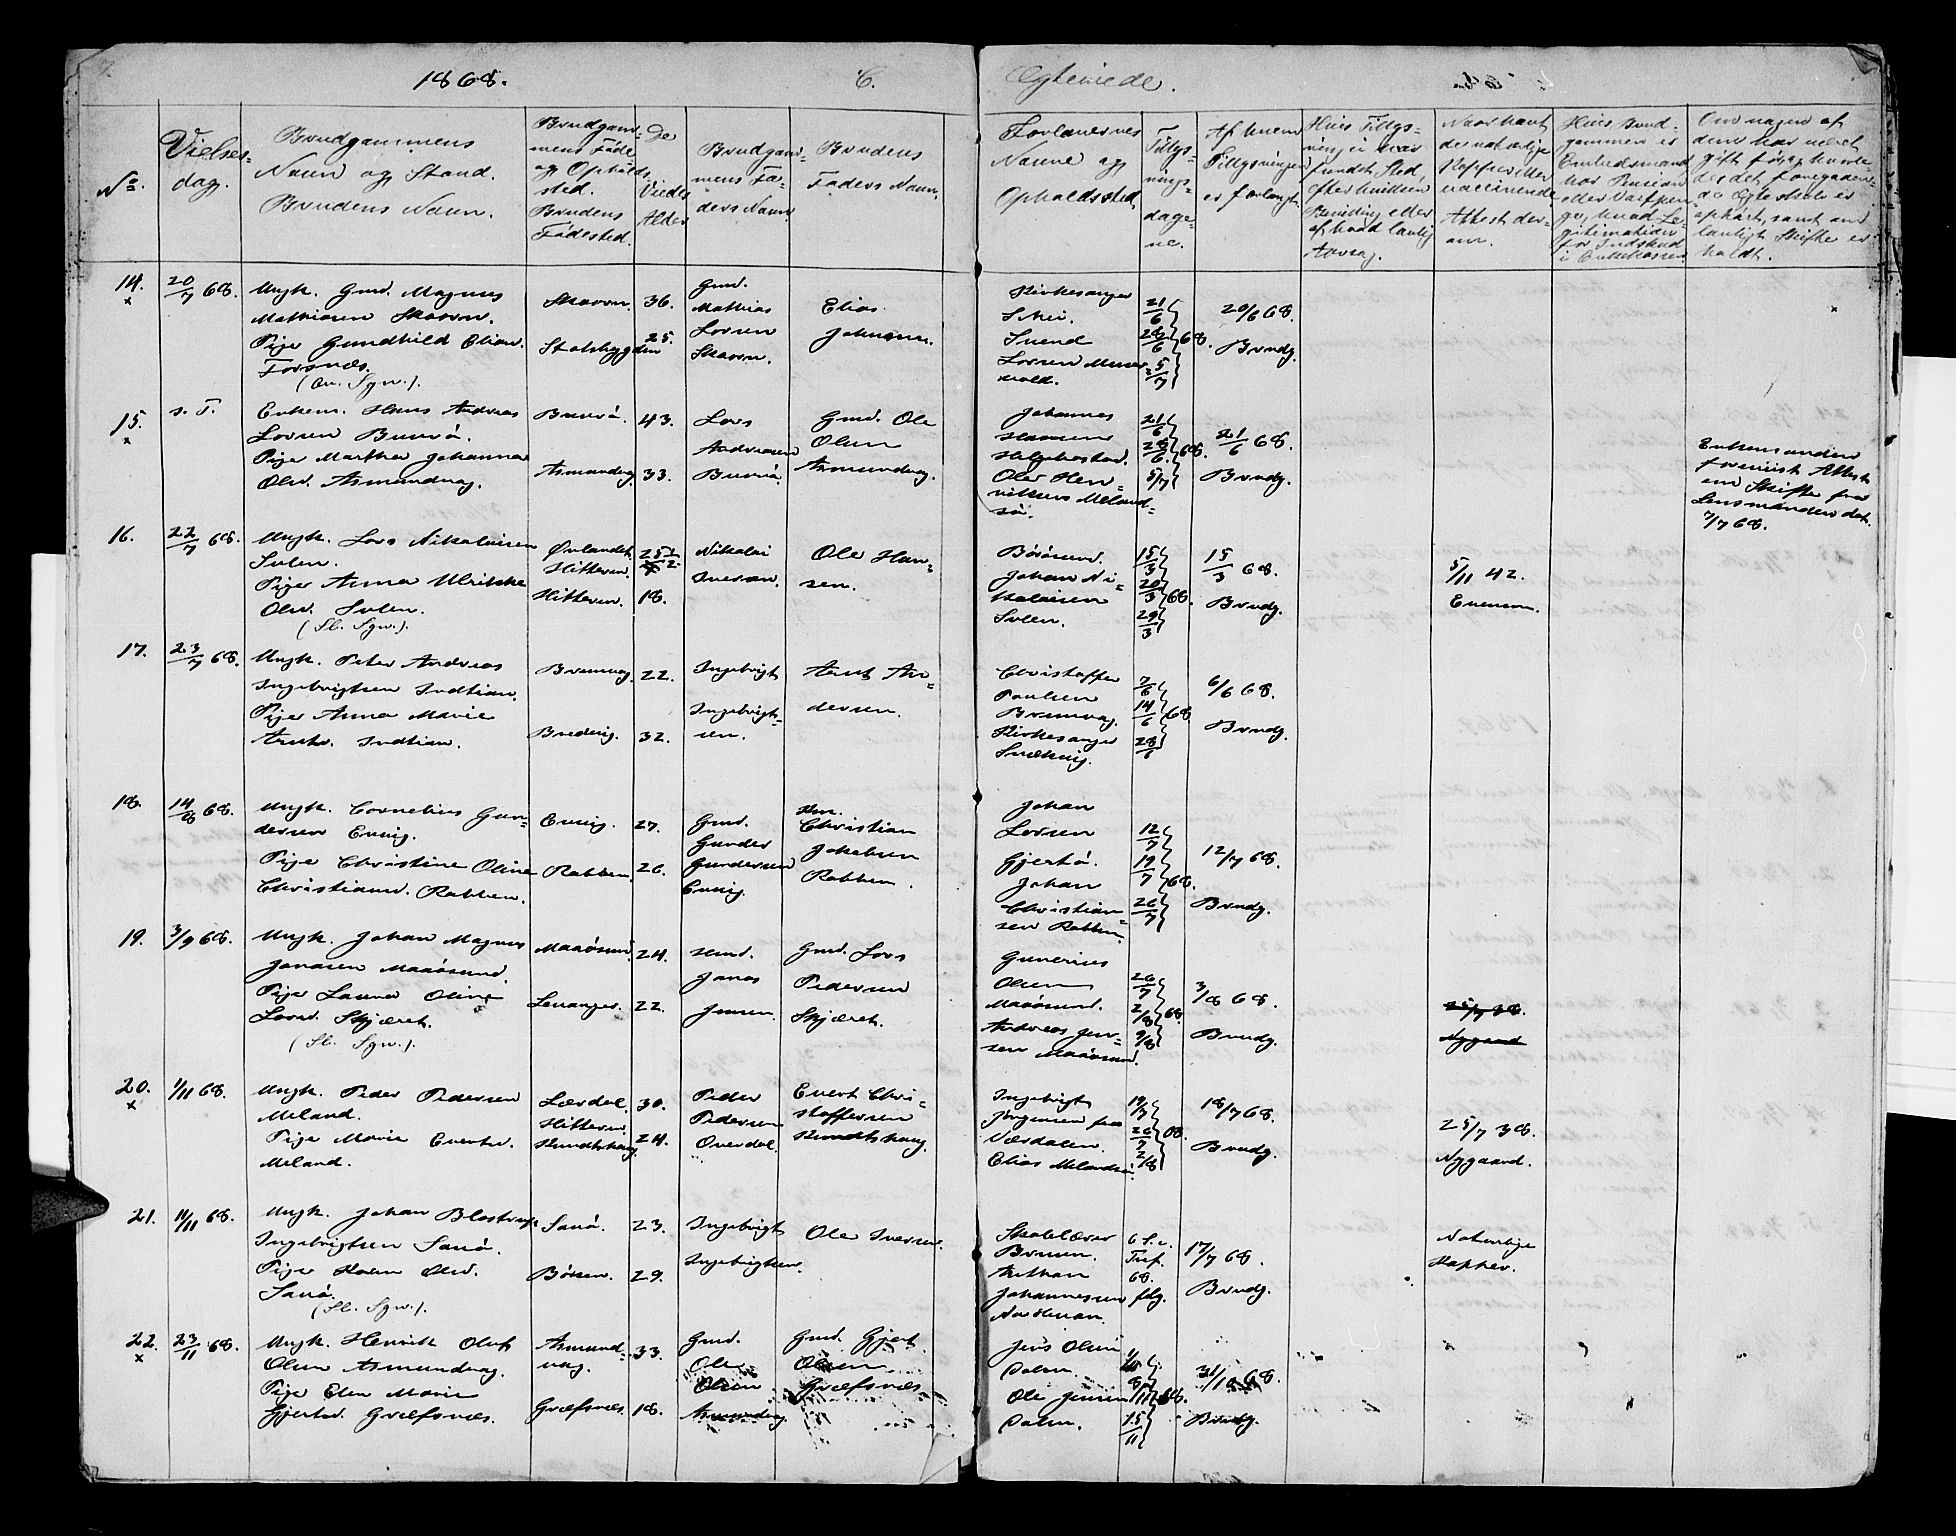 1868.
C.
Egteviede.
No.
Vielses-
dag.
Brudgammens
Navn og Stand.
Brudens Navn.
Brudgam-
mens Føde
og Opholds
sted.
Brudens
Fødested.
De
Viedes
Alder
Brudgam-
mens Fa-
ders Navn
Brudens
Faders Navn.
Forlovernes
Navne og
Opholdssted.
Tillys-
nings-
dage-
ne.
Af hvem
Tillysningen
er forlangt.
Hvis Tillys-
ning ei har
fundet Sted,
efter hvilken
Bevilling eller
af hvad lovlig
Aarsag.
Naar havt
de naturlige
Kopper eller
vaccinerede
Attest der-
om.
Om nogen af
dem har været
gift før, og hvorle-
des det foregaaen-
de Egteskab er
ophørt, samt om
lovligt Skifte er
holdt.
14.
x
20/7 68.
Ungk. Gmd. Magnus
Mathiasen Skaarn.
Pige Gundhild Elias.
Forsnæs.
Skaarn.
Stolsbygden
36.
25.
Gmd.
Mathias
Larsen
Skaarn.
Elias
Johansen.
Kirkesanger
Schei.
Svend
Larsen
21/6
28/6 68.
5/7
20/6 68.
Brudg.
x
15.
x
s. D.
Enkem. Hans Andreas
Larsen Burø.
Pige Martha Johanna
Olsd. Asmundvag.
Burø.
Asmundvag
43.
33.
Lars
Andreasen
Burø.
Gmd. Ole
Olsen
Asmundvag.
Johannes
Hansen
Helgebostad.
Oler Hen-
riksen Meland-
sø.
21/6
28/6 68.
5/7
21/6 68.
Brudg.
Enkemanden
forevist Attest
om Skifte fra
Lensmanden dat.
7/7 68.
16.
22/7 68.
Ungk. Lars Nikolaisen
Sulen.
Pige Anna Ulrikke
Olsd. Sulen.
(Sl. Sgn.).
Ørlandet
Hitteren.
Hitteren.
25 1/2
18.
Nikolai
Iversen.
Ole Han-
sen.
Børøsund.
Johan Ni-
kolaisen
Sulen.
15/3
20/3 68.
29/3
15/3 68.
Brudg.
5/11 42.
Evensen.
17.
23/7 68.
Ungk. Peter Andreas
Ingebrigtsen Indtian.
Pige Anna Marie
Arntsd. Indtian.
Bremvag.
Bredvig.
22.
32.
Ingebrigt
Ingebrigt-
sen.
Arnt An-
dersen.
Christoffer
Paulsen
Bremvag.
Kirkesanger
Snekvig.
7/6
14/6 68
28/6
6/6 68.
Brudg.
18.
14/8 68.
Ungk. Cornelius Gun-
dersen Ervig.
Pige Christine Oline
Christiansd. Rabben.
Ervig.
Rabben.
27.
26.
Gmd.
Gunder
Gundersen
Ervig.
Hm.
Christian
Jakobsen
Rabben.
Johan
Larsen
Gjertø.
Johan
Christian-
sen Rabben.
12/7
19/7 68.
26/7
12/7 68.
Brudg.
19.
3/9 68.
Ungk. Johan Magnus
Jonasen Maaøsund.
Pige Laura Oline
Larsd. Skjæret.
(Sl. Sgn.).
Maaøsund.
Levanger.
24.
22.
Hmd.
Jonas
Jensen.
Gmd. Lars
Pedersen
Skjæret.
Gunerius
Olsen
Maaøsund.
Andreas Jen-
sen Maaøsund.
26/7
2/8 68.
9/8
3/8 68.
Brudg.
25/7 38.
Nygaard
20.
x
1/11 68.
Ungk. Peder Pedersen
Meland.
Pige Marie Evertsd.
Meland.
Lerdal.
Hitteren.
Hundtshaug.
30.
24.
Peder
Pedersen
Overdal.
Evert Chri-
stoffersen
Hundtshaug.
Ingebrigt
Jørgensen fra
Værdalen.
Elias Melandsø.
19/7
26/7 68.
2/8
18/7 68.
Brudg.
25/7 38.
Nygaard.
21.
11/11 68.
Ungk. Johan
Ingebrigtsen Sanø.
Pige Karen Olsd.
Sanø.
(Sl. Sgn.).
Sanø.
Børsen.
23.
29.
Ingebrigt
Ingebrigtsen.
Ole Iversen.
Skolelærer
Bremen.
Nathan
Johannesen
6 S. e.
Tref.
68.
fdg.
17/7 68.
Brudg.
Naturlige
Kopper.
22.
x
23/11 68.
Ungk. Henrik Oluf
Olsen Asmundvag.
Pige Elen Marie
Gjertsd. Græfsnæs.
Asmund-
vag.
Græfsnæs.
33.
18.
Gmd.
Ole
Olsen
Asmundvag.
Gmd. Gjert
Olsen
Græfsnæs.
Jens Olsen
Dalen.
Ole Jensen
Dalen.
8/11 68.
15/11
31/10 68.
Brudg.